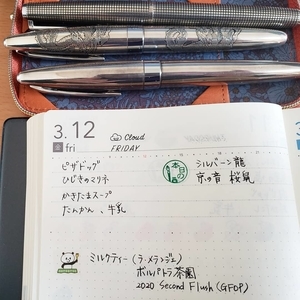 3.12
金 fri
Cloud
FRIDAY
ピザドッグ
ひじきのマリネ
かきたまスープ
たんかん、牛乳
本日の
シルバーン龍
京の音 桜鼠
ミルクティー(ラ・メランジェ)
ボルパトラ茶園
2020 Second Flush (GFOP)